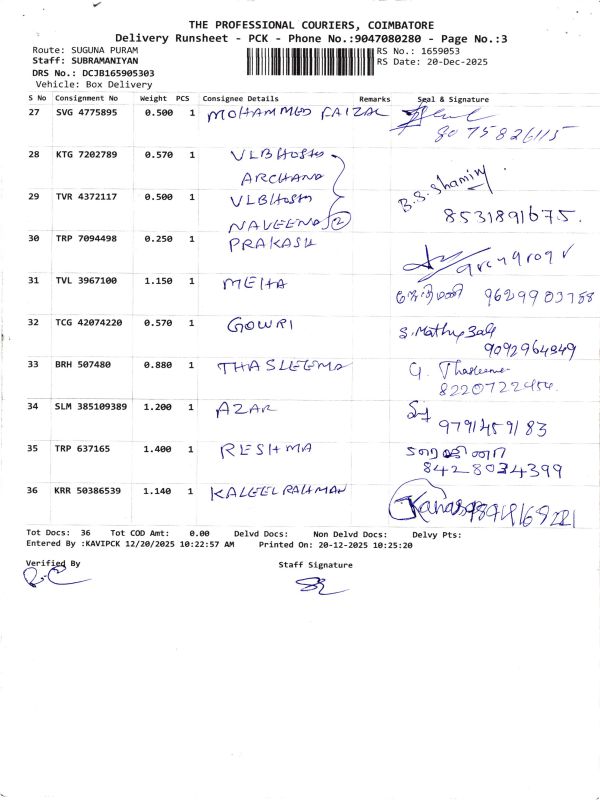 THE PROFESSIONAL COURIERS, COIMBATORE
Delivery Runsheet - PCK - Phone No.:9047080280 - Page No.:3
Route: SUGUNA PURAM
RS No.: 1659053
Staff: SUBRAMANIYAN
RS Date: 20-Dec-2025
DRS No.: DCJB165905303
Vehicle: Box Delivery
S No Consignment No Weight PCS Consignee Details Remarks Seal & Signature
27 SVG 4775895 0.500 1 MOHAMMED FAIZAL
8075826115
28 KTG 7202789 0.570 1 VLBHOSTS
ARCHANA
29 TVR 4372117 0.500 1 VLBHOSTS B.S. Shaminy
NAVEENA 2 8531891675.
30 TRP 7094498 0.250 1 PRAKASH
31 TVL 3967100 1.150 1 MEHA
9629903758
32 TCG 42074220 0.570 1 GOWRI
9092964949
33 BRH 507480 0.880 1 THASLEEMA G. Thasleema
8220722454.
34 SLM 385109389 1.200 1 AZAR
9791459183
35 TRP 637165 1.400 1 RESHMA
8428034399
36 KRR 50386539 1.140 1 KALEELRAHMAN
Tot Docs: 36 Tot COD Amt: 0.00 Delvd Docs: Non Delvd Docs: Delvy Pts:
Entered By :KAVIPCK 12/20/2025 10:22:57 AM Printed On: 20-12-2025 10:25:20
Verified By Staff Signature